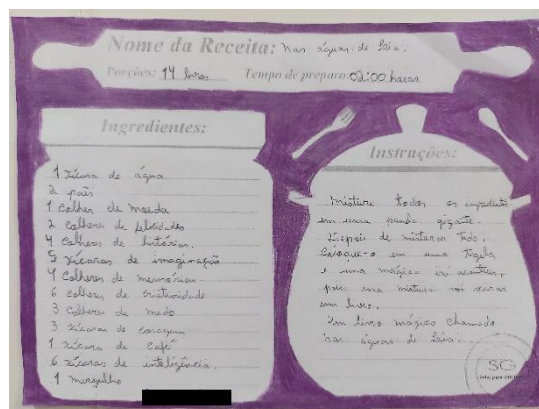 Nome da Receita: nas águas de Laia.
Porções: 14 livros Tempo de preparo: 02:00 horas
Ingredientes:
1 xícara de água
2 país
1 colher de moeda
2 colheres de felicidades
4 colheres de histórias.
5 xícaras de imaginação
4 colheres de memórias
6 colheres de criatividade
3 colheres de medo
3 xícaras de coragem
1 xícara de café
6 xícaras de inteligência.
1 mergulho
Instruções:
Misture todos os ingredientes
em uma panela gigante.
Depois de misturar tudo,
coloque-o em uma tigela
e uma mágica irá acontecer,
pois essa mistura vai virar
um livro.
Um livro mágico chamado
nas águas de Laia...
SG